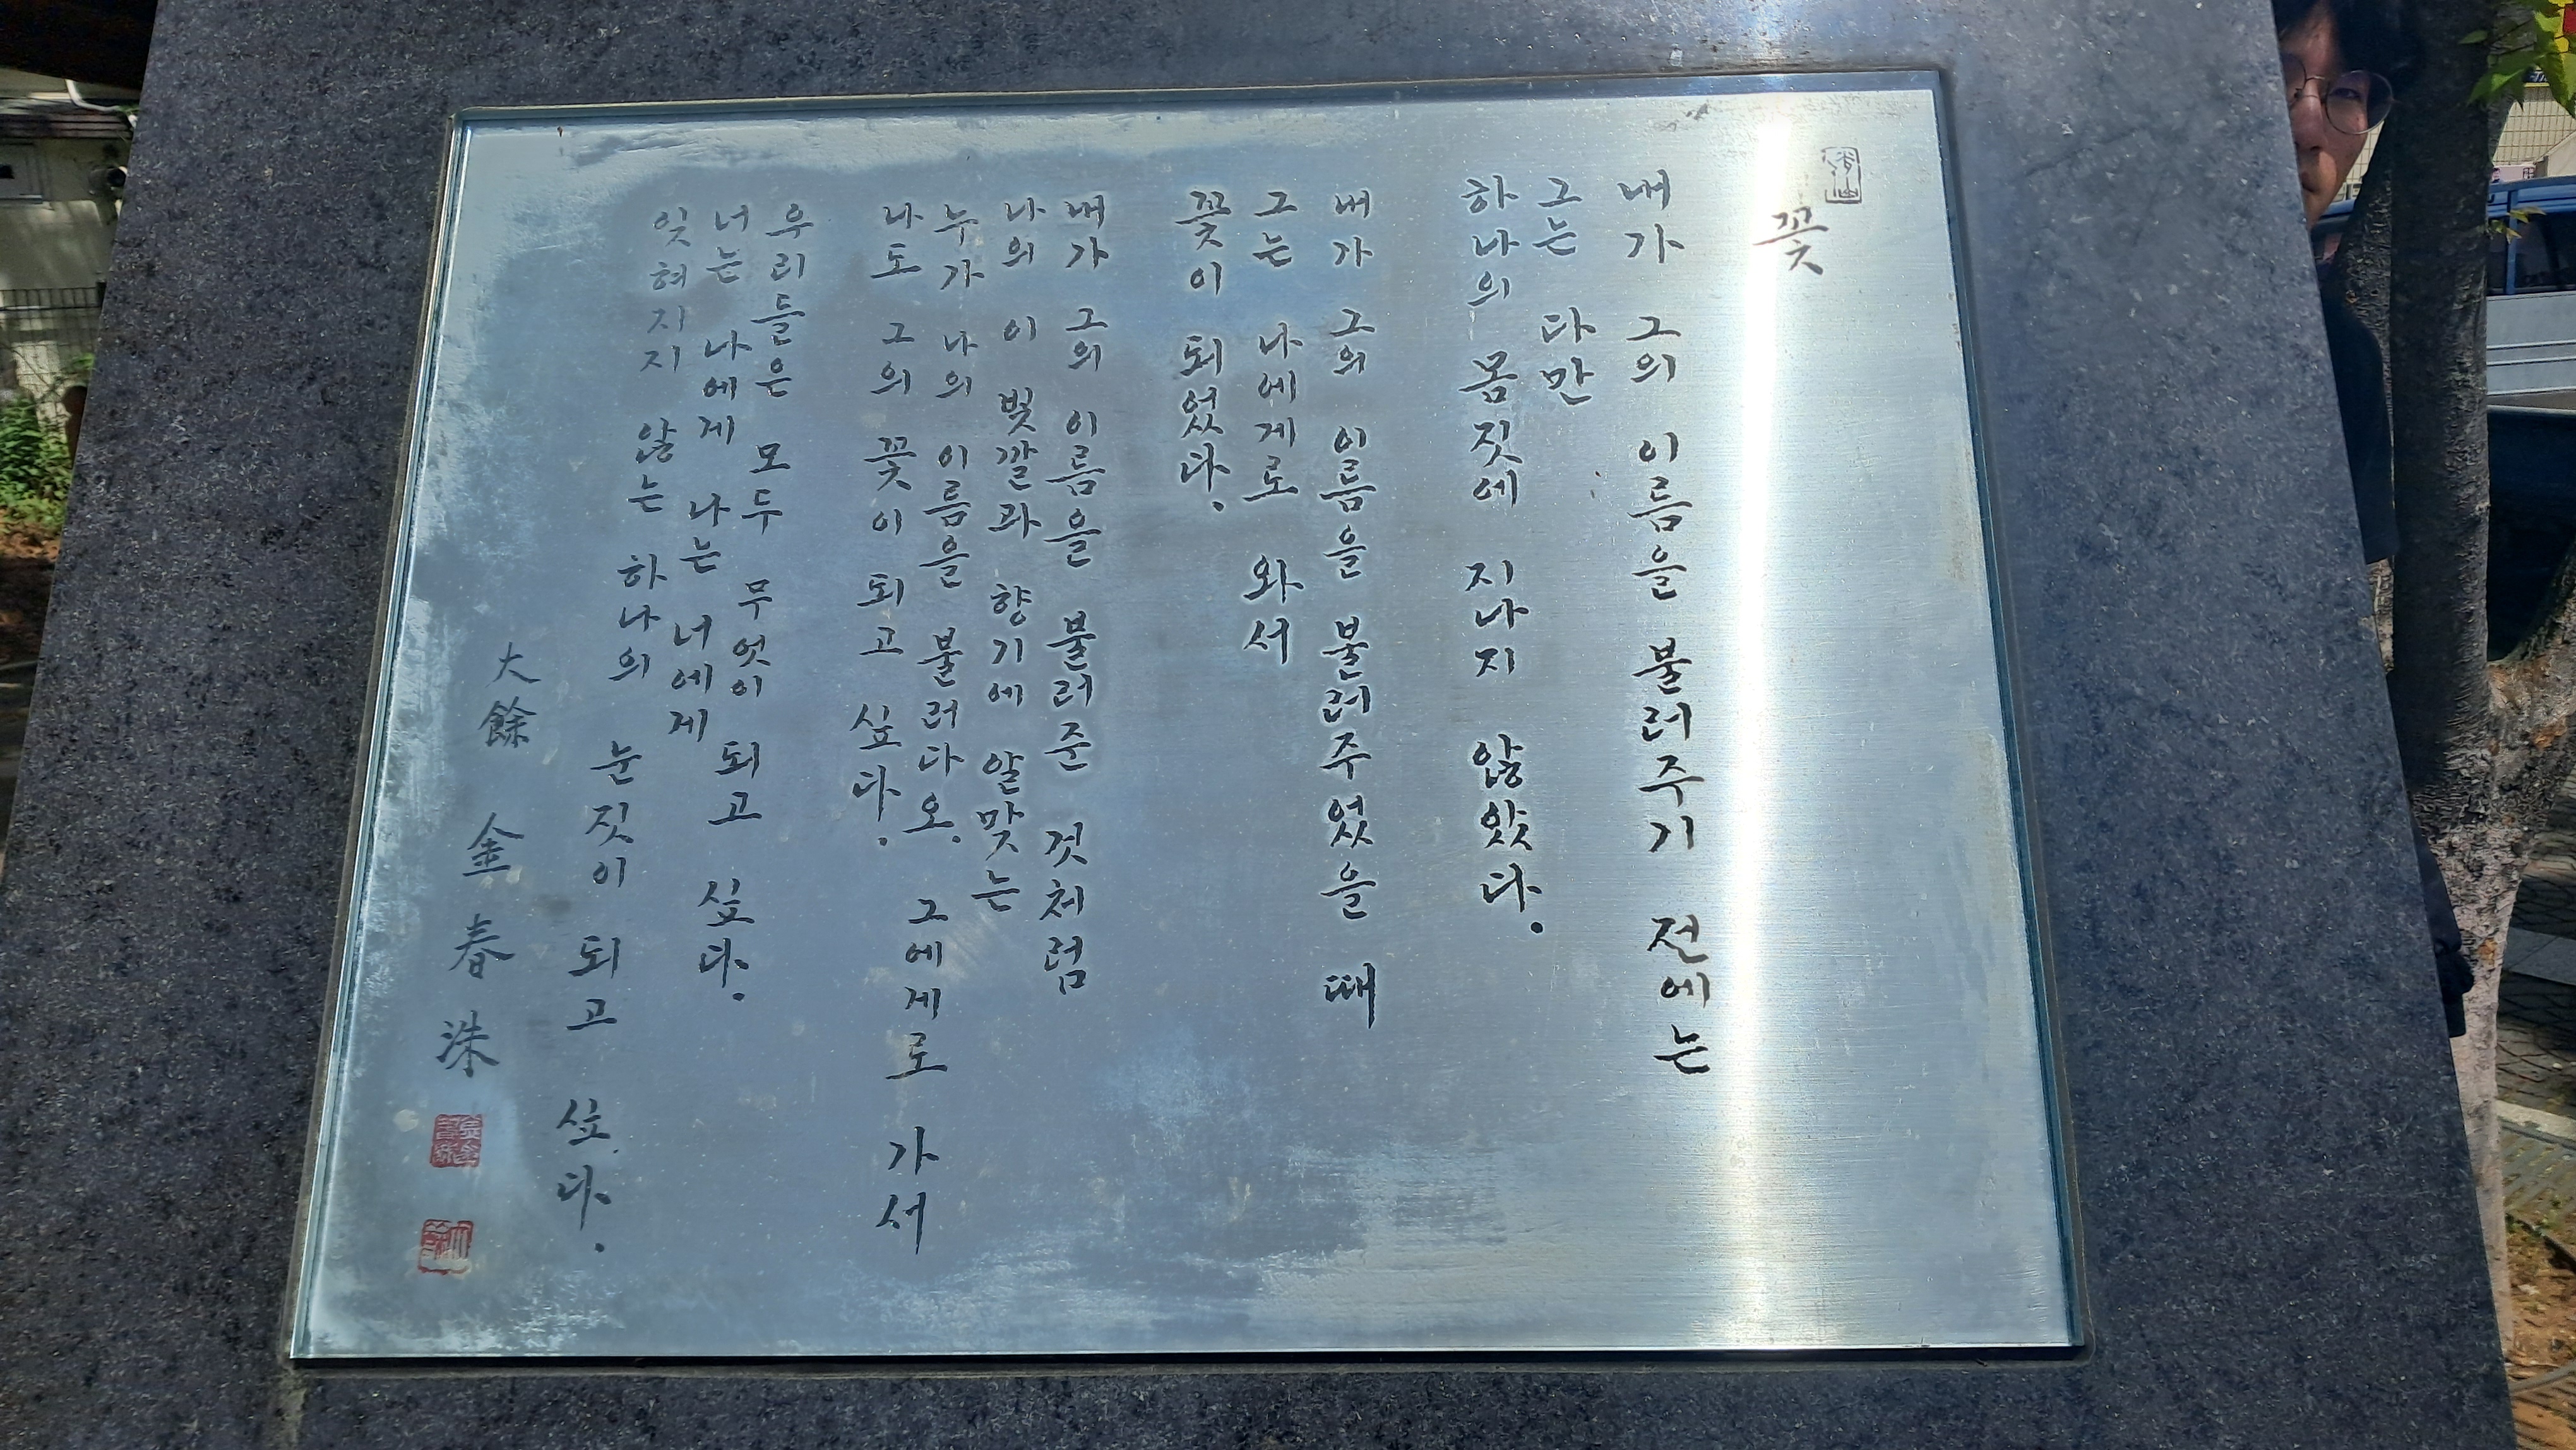 꽃
내가 그의 이름을 불러주기 전에는
그는 다만
하나의 몸짓에 지나지 않았다.
내가 그의 이름을 불러주었을 때
그는 나에게로 와서
꽃이 되었다.
내가 그의 이름을 불러준 것처럼
나의 이 빛깔과 향기에 알맞는
누가 나의 이름을 불러다오. 그에게로 가서
나도 그의 꽃이 되고 싶다.
우리들은 모두 무엇이 되고 싶다.
너는 나에게 나는 너에게
잊혀지지 않는 하나의 눈짓이 되고 싶다.
大餘 金春洙